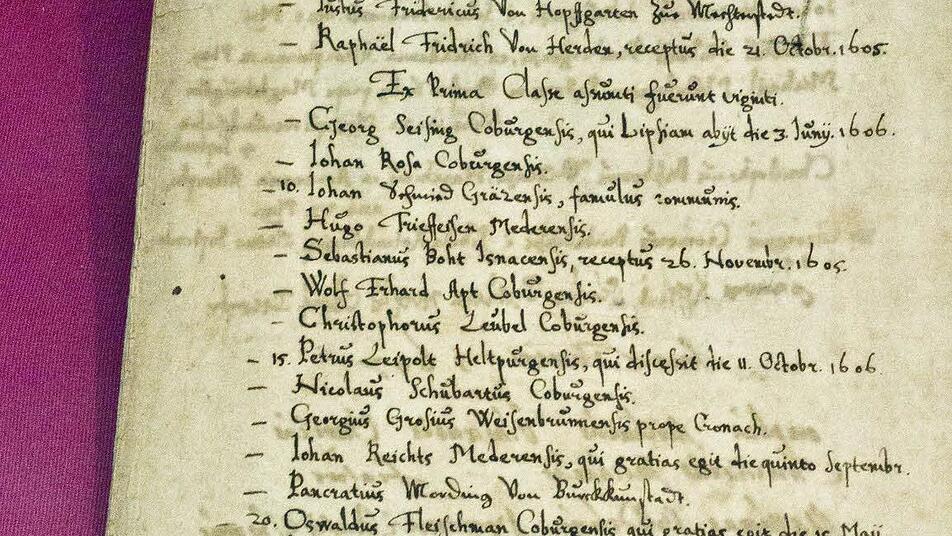 – Iustus Fridericus Von Hopffgarten zue Mechterstedt.
– Raphaël Fridrich Von Herden, receptus die 21. Octobr. 1605.
Ex Prima Classe assumti fuerunt viginti.
– Georg Seifing Coburgensis, qui Lipsiam abÿt die 3. Junÿ. 1606.
– Iohan Rosa Coburgensis.
– 10. Iohan Schmied Gräzensis, famulus communis.
– Hugo Frieffeisen Mederensis.
– Sebastianus Boht Isnacensis, receptus 26. Novembr. 1605.
– Wolf Erhard Apt Coburgensis.
– Christophorus Leubel Coburgensis.
– 15. Petrus Leipolt Heltpurgensis, qui discessit die 11. Octobr. 1606.
– Nicolaus Schubartus Coburgensis.
– Georgius Grosius Weisenbrunnensis prope Cronach.
– Iohan Reichts Mederensis, qui gratias egit die quinto Septembr.
– Pancratius Mording Von Burckkunstadt.
– 20. Oswaldus Fleischman Coburgensis qui gratias egit die 15 Maij